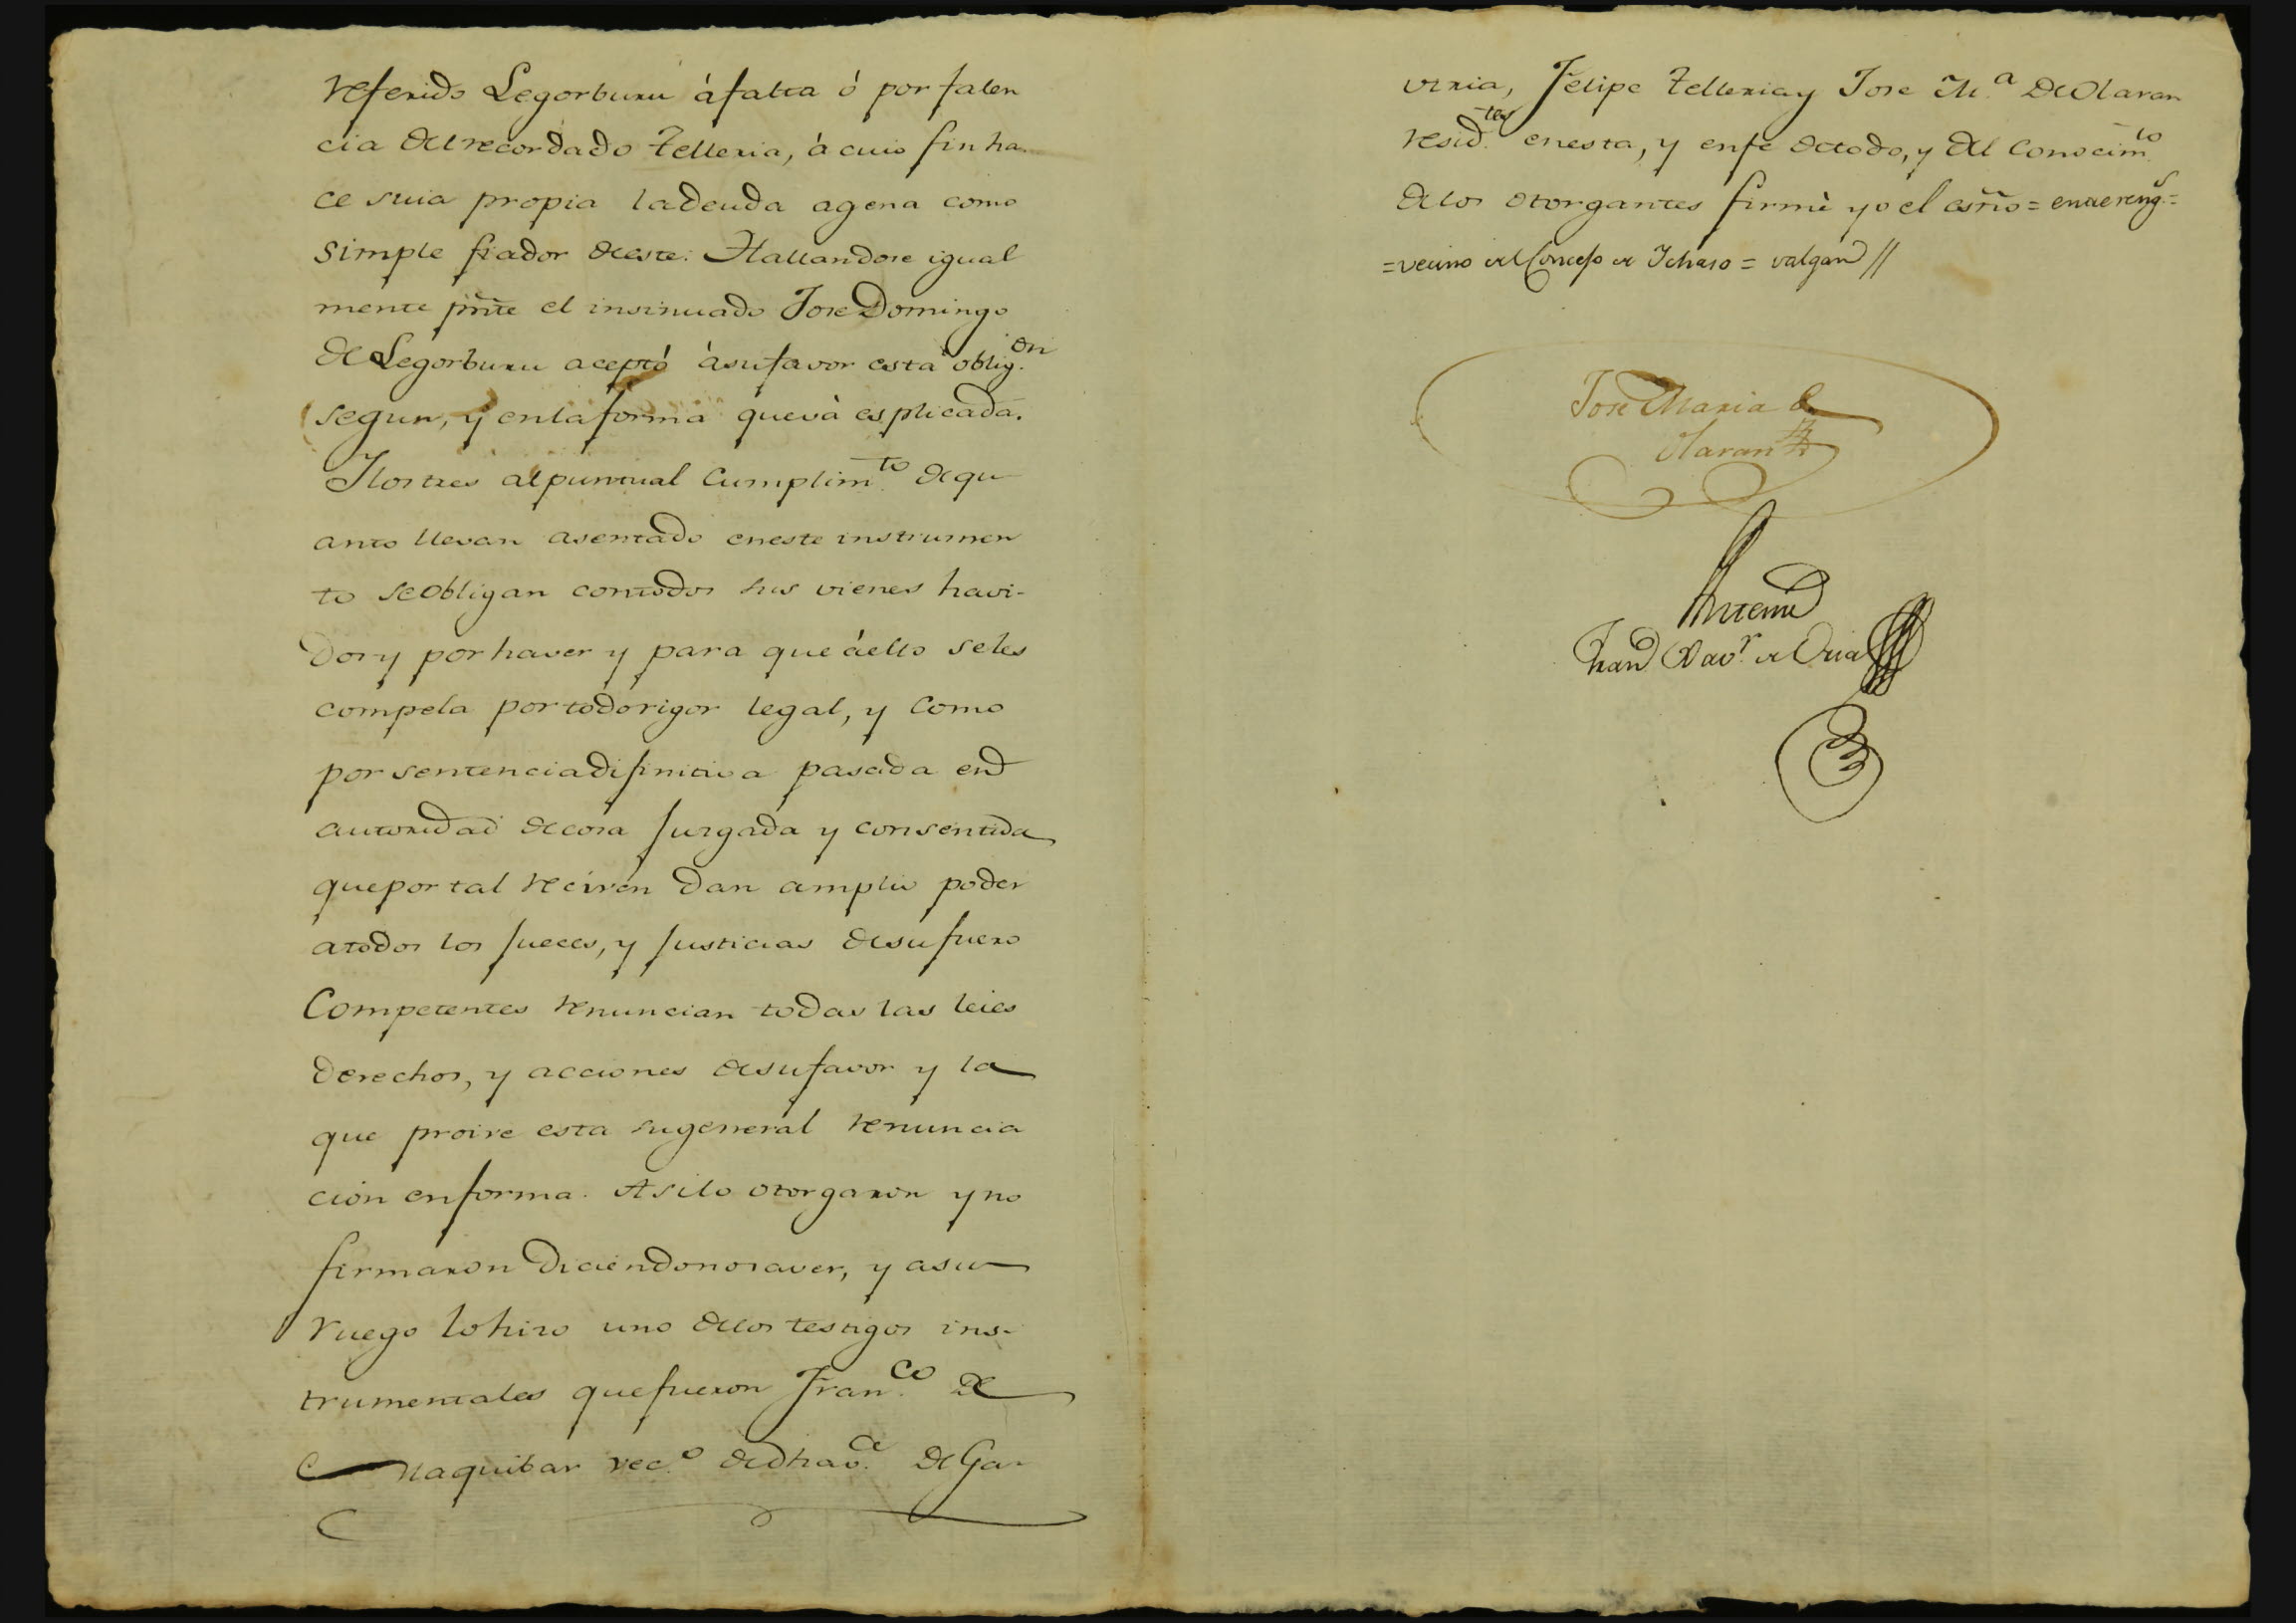 referido Legorburu á falta ó por falen
cia del recordado Telleria, á cuio fin ha
ce suia propia la deuda agena como
simple fiador de este. Hallandose igual
mente prñte el insinuado Jose Domingo
de Legorburu aceptó á su favor esta oblig.on
segun, y en la forma que vá esplicada.
Y los tres al puntual cumplim.to de qu
anto llevan asentado en este instrumen
to se obligan con todos sus vienes havi-
dos y por haver y para que á ello se les
compela por todo rigor legal, y como
por sentencia difinitiva pasada en
autoridad de cosa juzgada y consentida
que por tal reciven dan amplio poder
a todos los jueces, y justicias de su fuero
Competentes renuncian todas las leies
derechos, y acciones de su favor y la
que proive esta su general renuncia
ción en forma. Asi lo otorgaron y no
firmaron diciendo no saver, y a su
ruego lo hizo uno de los testigos ins-
trumentales que fueron Fran.co de
naquibar vec.o de dha v.a de Ga-
viria, Felipe Telleria y Jose M.a de Olaran
resid.tes en esta, y en fe de todo, y del conocim.to
de los otorgantes firmè yo el esño = entre reng.s =
= vecino del Concejo de Ichaso = valgan //
Jose Maria de
Olaran
Antemi
Fran.co Xav.r de Oria